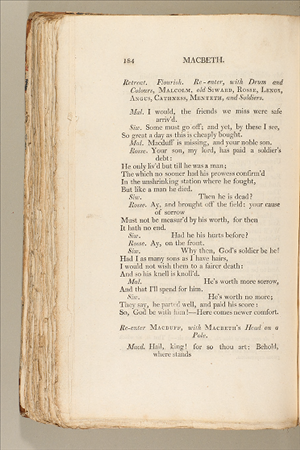 184 MACBETH.
Retreat. Flourish. Re-enter, with Drum and
Colours, MALCOLM, old SIWARD, ROSSE, LENOX,
ANGUS, CATHNESS, MENTETH, and Soldiers.
Mal. I would, the friends we miss were safe
arriv'd.
Siw. Some must go off; and yet, by these I see,
So great a day as this is cheaply bought.
Mal. Macduff is missing, and your noble son.
Rosse. Your son, my lord, has paid a soldier's
debt:
He only liv'd but till he was a man;
The which no sooner had his prowess confirm'd
In the unshrinking station where he fought,
But like a man he died.
Siw. Then he is dead?
Rosse. Ay, and brought off the field: your cause
of sorrow
Must not be measur'd by his worth, for then
It hath no end.
Siw. Had he his hurts before?
Rosse. Ay, on the front.
Siw. Why then, God's soldier be he!
Had I as many sons as I have hairs,
I would not wish them to a fairer death:
And so his knell is knoll'd.
Mal. He's worth more sorrow,
And that I'll spend for him.
Siw. He's worth no more;
They say, he parted well, and paid his score:
So, God be with him!—Here comes newer comfort.
Re-enter MACDUFF, with MACBETH's Head on a
Pole.
Macd. Hail, king! for so thou art: Behold,
where stands